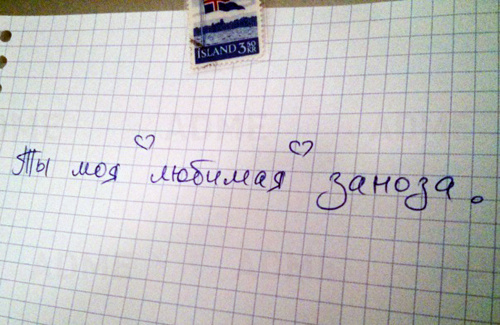 ISLAND 3 50 KR
Ты моя ♡ любимая ♡ заноза.